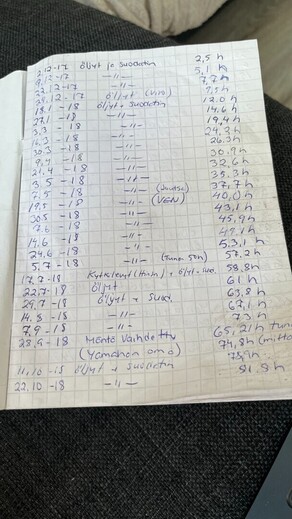 2.12-17 Öljyt ja suodatin 2,5 h
-17 -11- 5,1 h
22.12-17 -11- 7,7 h
-12-17 Öljyt (Viro) 9,5 h
18.1 -18 Öljyt + Suodatin 12.0 h
27.1 -18 -11- 14,6 h
3.3 -18 -11- 19,4 h
-18 -11- 24,3 h
-18 -11- 26.3 h
9.4 -18 -11- 30,9 h
21.4 -18 -11- 32,6 h
3.5 -18 -11- 35,3 h
-18 -11- 37,7 h
19.5 -18 -11- (VGN) 40,0 h
30.5 -18 -11- 43,1 h
7.6 -18 -11- 45,9 h
14.6 -18 -11-
24,6 -18 -11- 53,1 h
5.7 -18 -11- 57,2 h
17,7-18 + öljyt + suo. 58,8 h
22,7-18 Öljyt 61 h
29,7-18 Öljyt + Suod. 63,8 h
14,8 -18 -11- 67,1 h
7,9 -18 -11- 73 h
28,9 -18 Mäntä Vaihdettu 65,21 h
(Yamahan oma) 74,8 h
11,10 -18 Öljyt + suodatin
22,10 -18 -11- 81,8 h